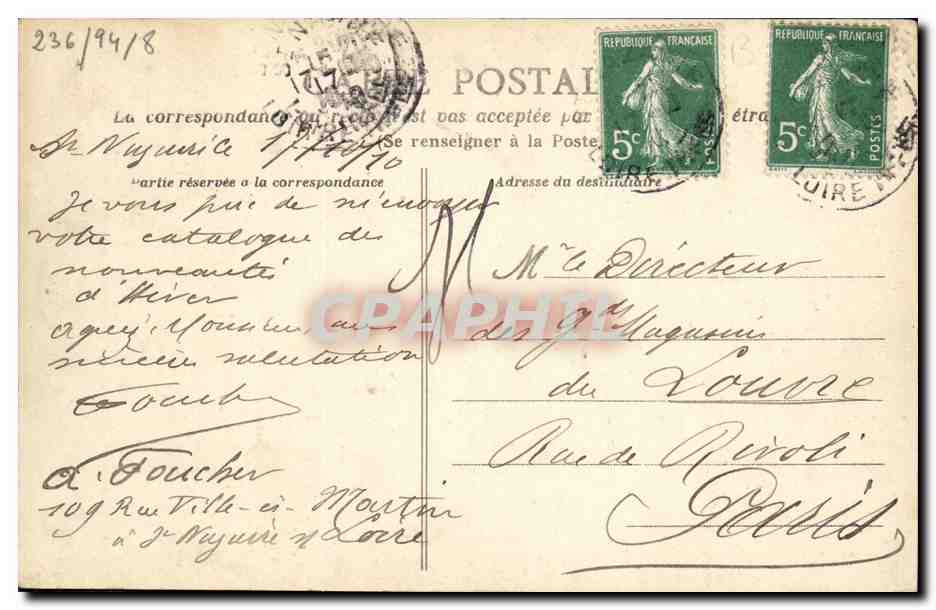 236/94/8
POSTAL
La correspondance au recto n'est pas acceptée par
(Se renseigner à la Poste
RÉPUBLIQUE FRANÇAISE
5c
POSTES
RÉPUBLIQUE FRANÇAISE
5c
POSTES
LOIRE
LOIRE INF
St Nazaire le 17/10/10
Partie réservée à la correspondance
Je vous prie de m'envoyer
votre catalogue des
nouveautés
d'Hiver
agréez, Monsieur, mes
sincères salutations
A. Foucher
109 Rue Ville-ès-Martin
à St Nazaire s/ Loire
Adresse du destinataire
Mr le Directeur
des Gds Magasins
du Louvre
Rue de Rivoli
Paris
CPARPHIL